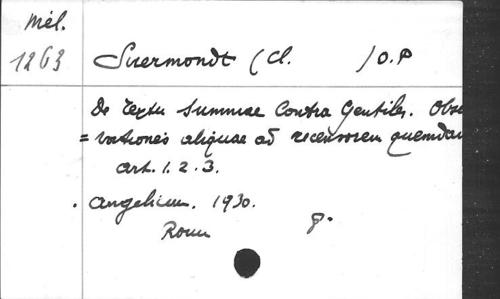 Mél.
1263
Suermondt (Cl. ) O.P
De textu Summae Contra Gentiles. Obse
= vationes aliquae ad recensorem quemdam
art. 1. 2. 3.
. Angelicum. 1930.
Rome 8°.